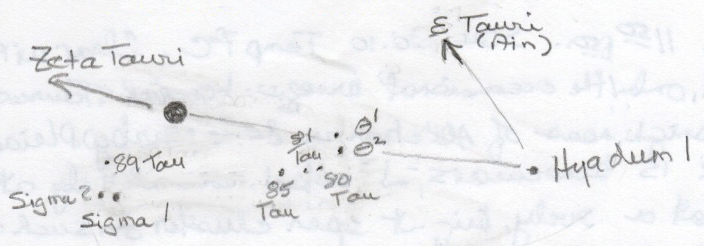 ε Tauri
(Ain)
Zeta Tauri
θ¹
81
Tau
θ²
Hyadum 1
.89 Tau
85
Tau
80
Tau
Sigma 2
Sigma 1